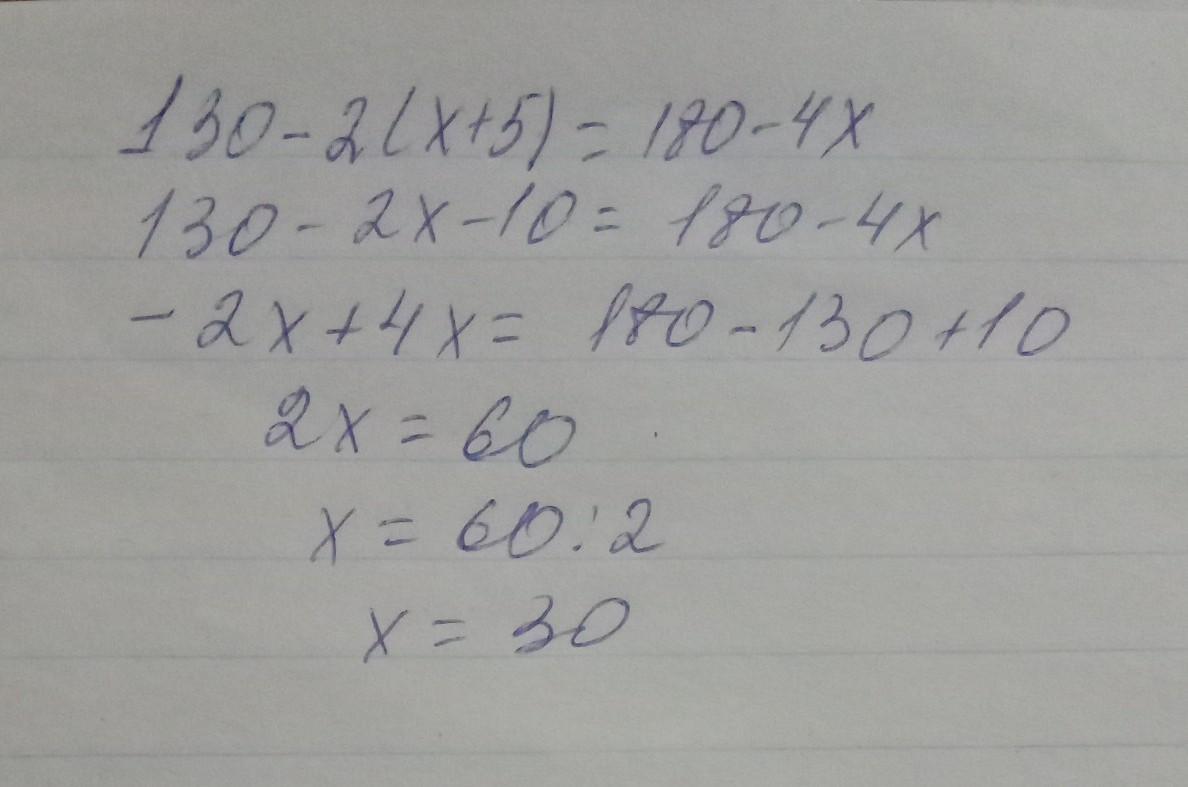 130-2(x+5)=180-4x
130-2x-10=180-4x
-2x+4x=180-130+10
2x=60
x=60:2
x=30